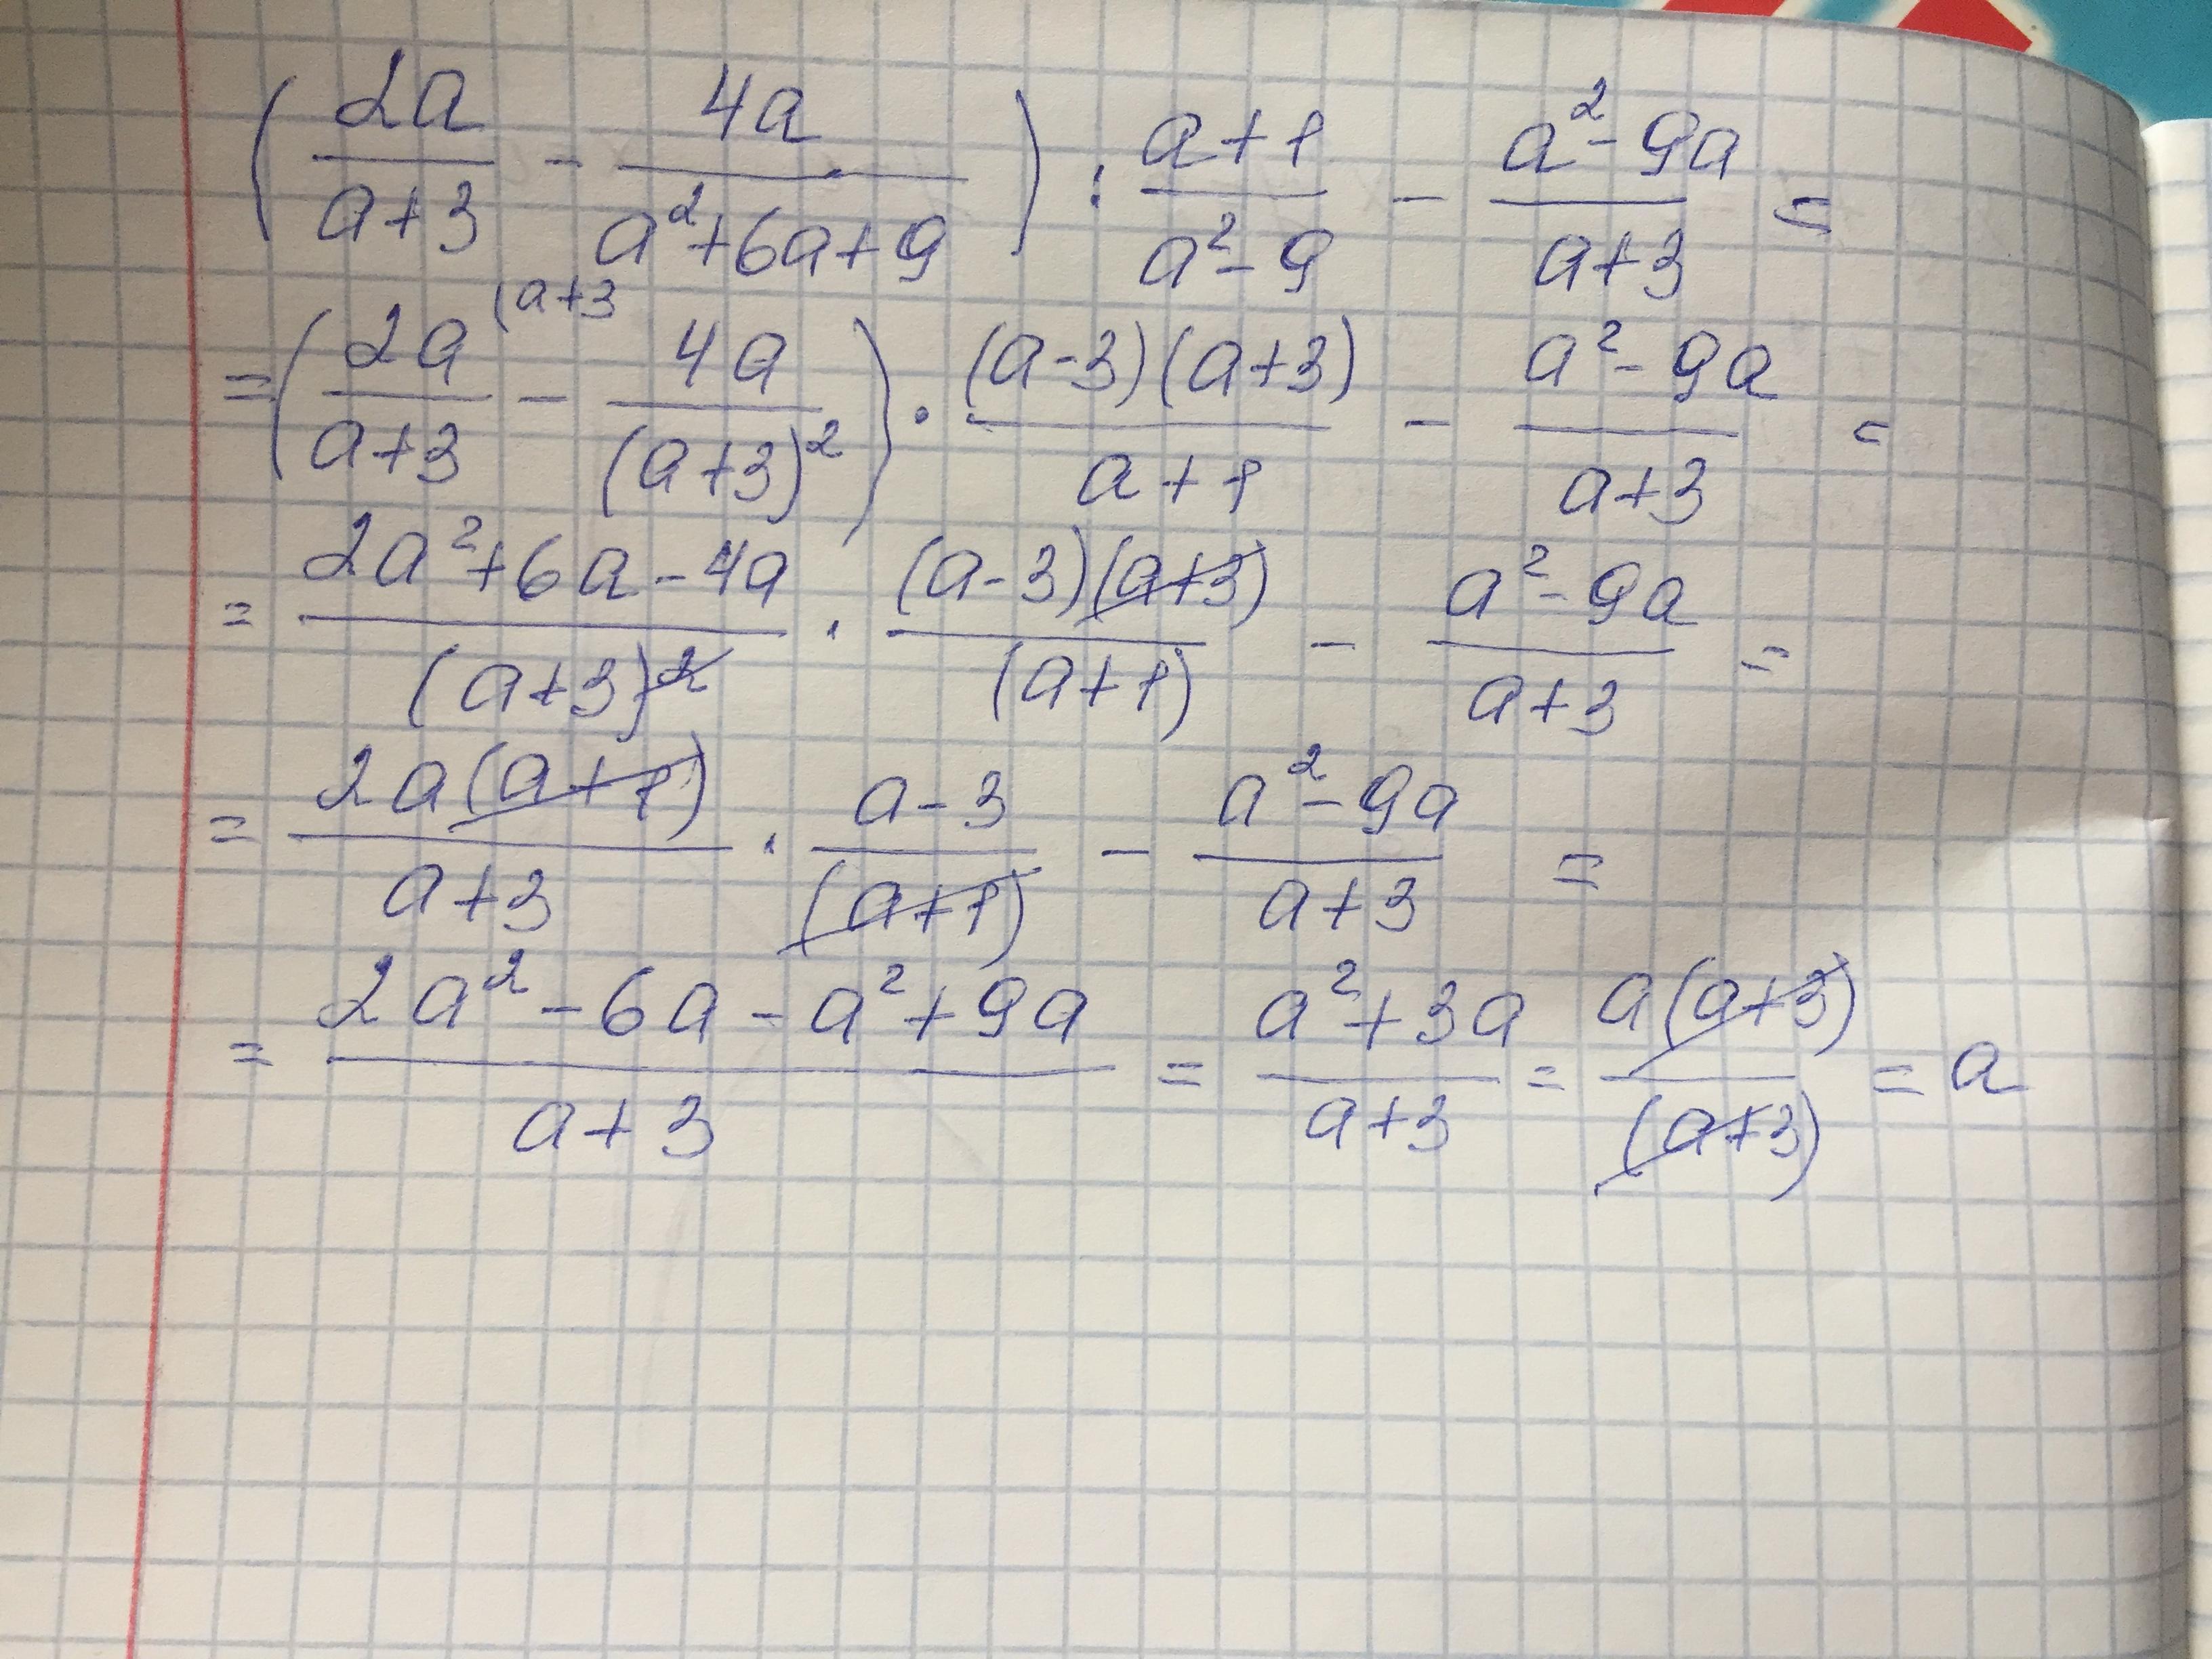 (2a/(a+3) - 4a/(a²+6a+9)) : (a+1)/(a²-9) - (a²-9a)/(a+3) =
= (2a/(a+3) (a+3 - 4a/(a+3)²) · (a-3)(a+3)/(a+1) - (a²-9a)/(a+3) =
= (2a²+6a-4a)/(a+3)² · (a-3)(a+3)/(a+1) - (a²-9a)/(a+3) =
= 2a(a+1)/(a+3) · (a-3)/(a+1) - (a²-9a)/(a+3) =
= (2a²-6a-a²+9a)/(a+3) = (a²+3a)/(a+3) = a(a+3)/(a+3) = a